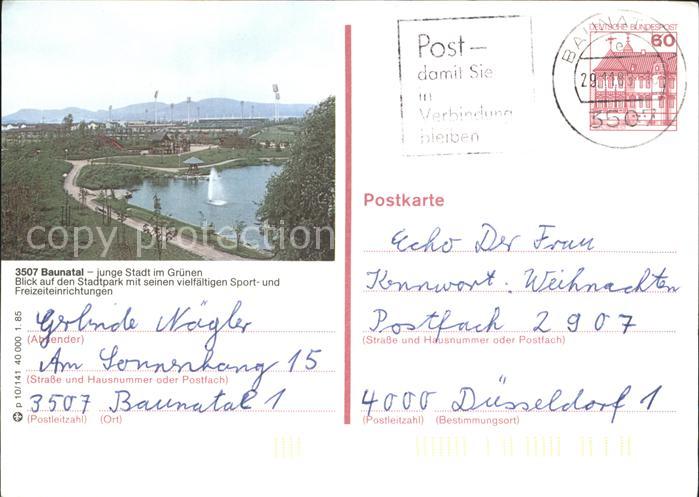 Post –
damit Sie
in
Verbindung
bleiben
BAUNAT
DEUTSCHE BUNDESPOST
60
3507
copyright
Postkarte
3507 Baunatal – junge Stadt im Grünen
Blick auf den Stadtpark mit seinen vielfältigen Sport- und
Freizeiteinrichtungen
p 10/141 40 000 1. 85
Gerlinde Nägler
(Absender)
Am Sonnenhang 15
(Straße und Hausnummer oder Postfach)
3507 Baunatal 1
(Postleitzahl) (Ort)
Echo Der Frau
Kennwort: Weihnachten
Postfach 2907
(Straße und Hausnummer oder Postfach)
4000 Düsseldorf 1
(Postleitzahl) (Bestimmungsort)